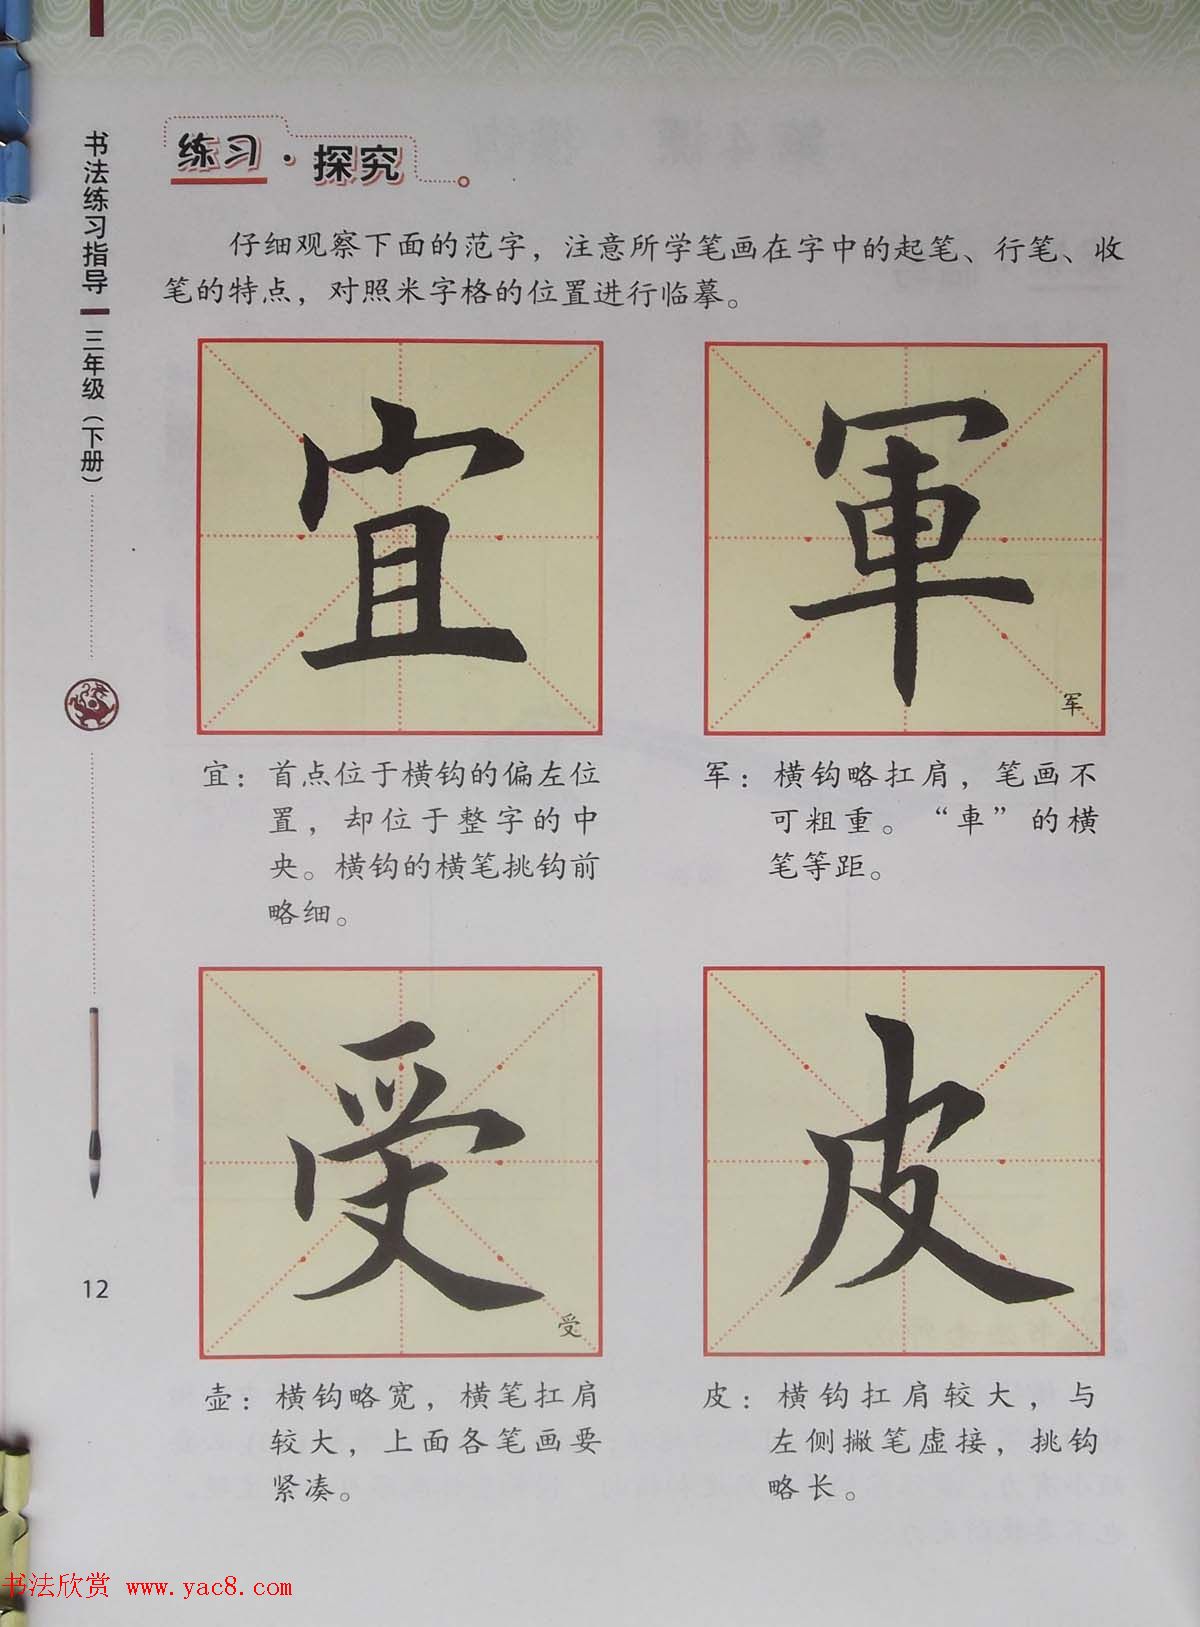 书法练习指导
三年级(下册)
12
练习·探究
仔细观察下面的范字，注意所学笔画在字中的起笔、行笔、收
笔的特点，对照米字格的位置进行临摹。
宜
軍
军
宜：首点位于横钩的偏左位
置，却位于整字的中
央。横钩的横笔挑钩前
略细。
军：横钩略扛肩，笔画不
可粗重。“車”的横
笔等距。
受
受
皮
壶：横钩略宽，横笔扛肩
较大，上面各笔画要
紧凑。
皮：横钩扛肩较大，与
左侧撇笔虚接，挑钩
略长。
书法欣赏 www.yac8.com